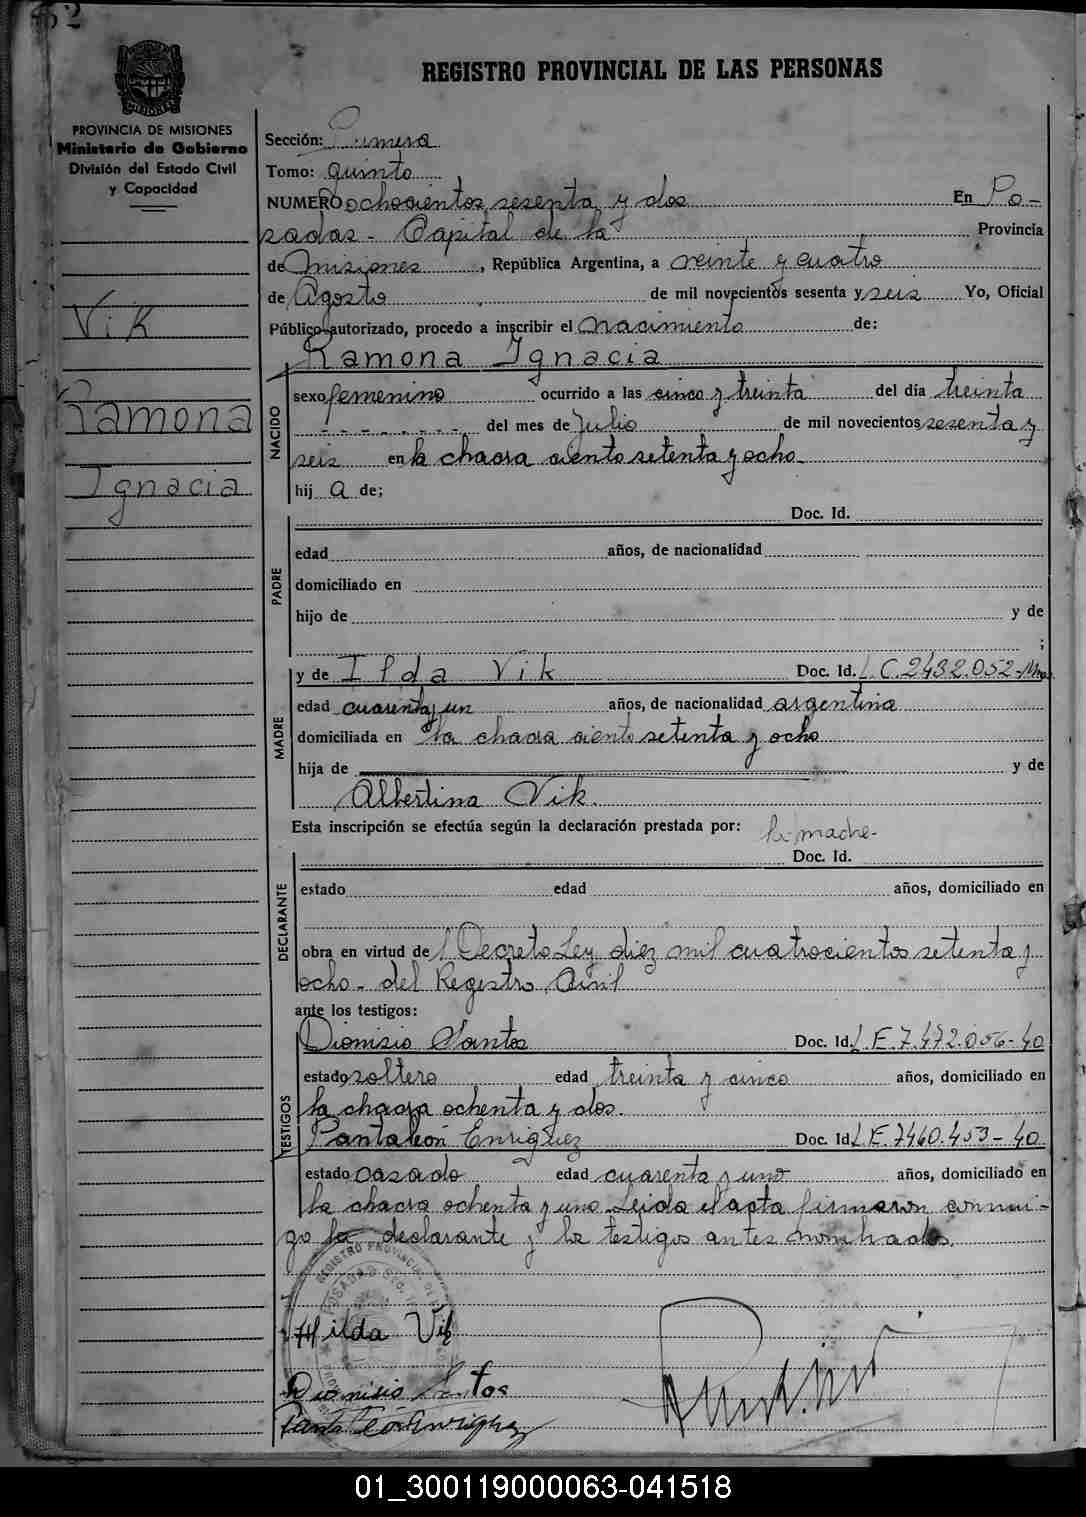 REGISTRO PROVINCIAL DE LAS PERSONAS
PROVINCIA DE MISIONES
Ministerio de Gobierno
División del Estado Civil
y Capacidad
Vik
Ramona
Ignacia
Sección: Primera
Tomo: quinto
NUMERO ochocientos sesenta y dos En Po-
sadas - Capital de la Provincia
de Misiones, República Argentina, a veinte y cuatro
de Agosto de mil novecientos sesenta y seis Yo, Oficial
Público autorizado, procedo a inscribir el nacimiento de:
Ramona Ignacia
NACIDO
sexo femenino ocurrido a las cinco y treinta del día treinta
- - - - - - - - del mes de Julio de mil novecientos sesenta y
seis en la chacra ciento setenta y ocho.
hij a de;
PADRE
Doc. Id.
edad años, de nacionalidad
domiciliado en
hijo de y de
;
MADRE
y de Ilda Vik Doc. Id. L.C.2432.052-
edad cuarenta y un años, de nacionalidad argentina
domiciliada en la chacra ciento setenta y ocho
hija de y de
Albertina Vik.
Esta inscripción se efectúa según la declaración prestada por: la madre-
DECLARANTE
Doc. Id.
estado edad años, domiciliado en
obra en virtud de l Decreto Ley diez mil cuatrocientos setenta y
ocho - del Registro Civil
ante los testigos:
TESTIGOS
Dionisio Santos Doc. Id. L.E.7.472.056-40
estado soltero edad treinta y cinco años, domiciliado en
la chacra ochenta y dos.
Pantaleón Enriguez Doc. Id. L.E.7460.453-40
estado casado edad cuarenta y uno años, domiciliado en
la chacra ochenta y uno. Leida el acta firmaron conmi-
go la declarante y los testigos antes nombrados.
REGISTRO PROVINCIAL DE
POSADAS
Hilda Vik
Dionisio Santos
Pantaleón Enriquez
01_300119000063-041518